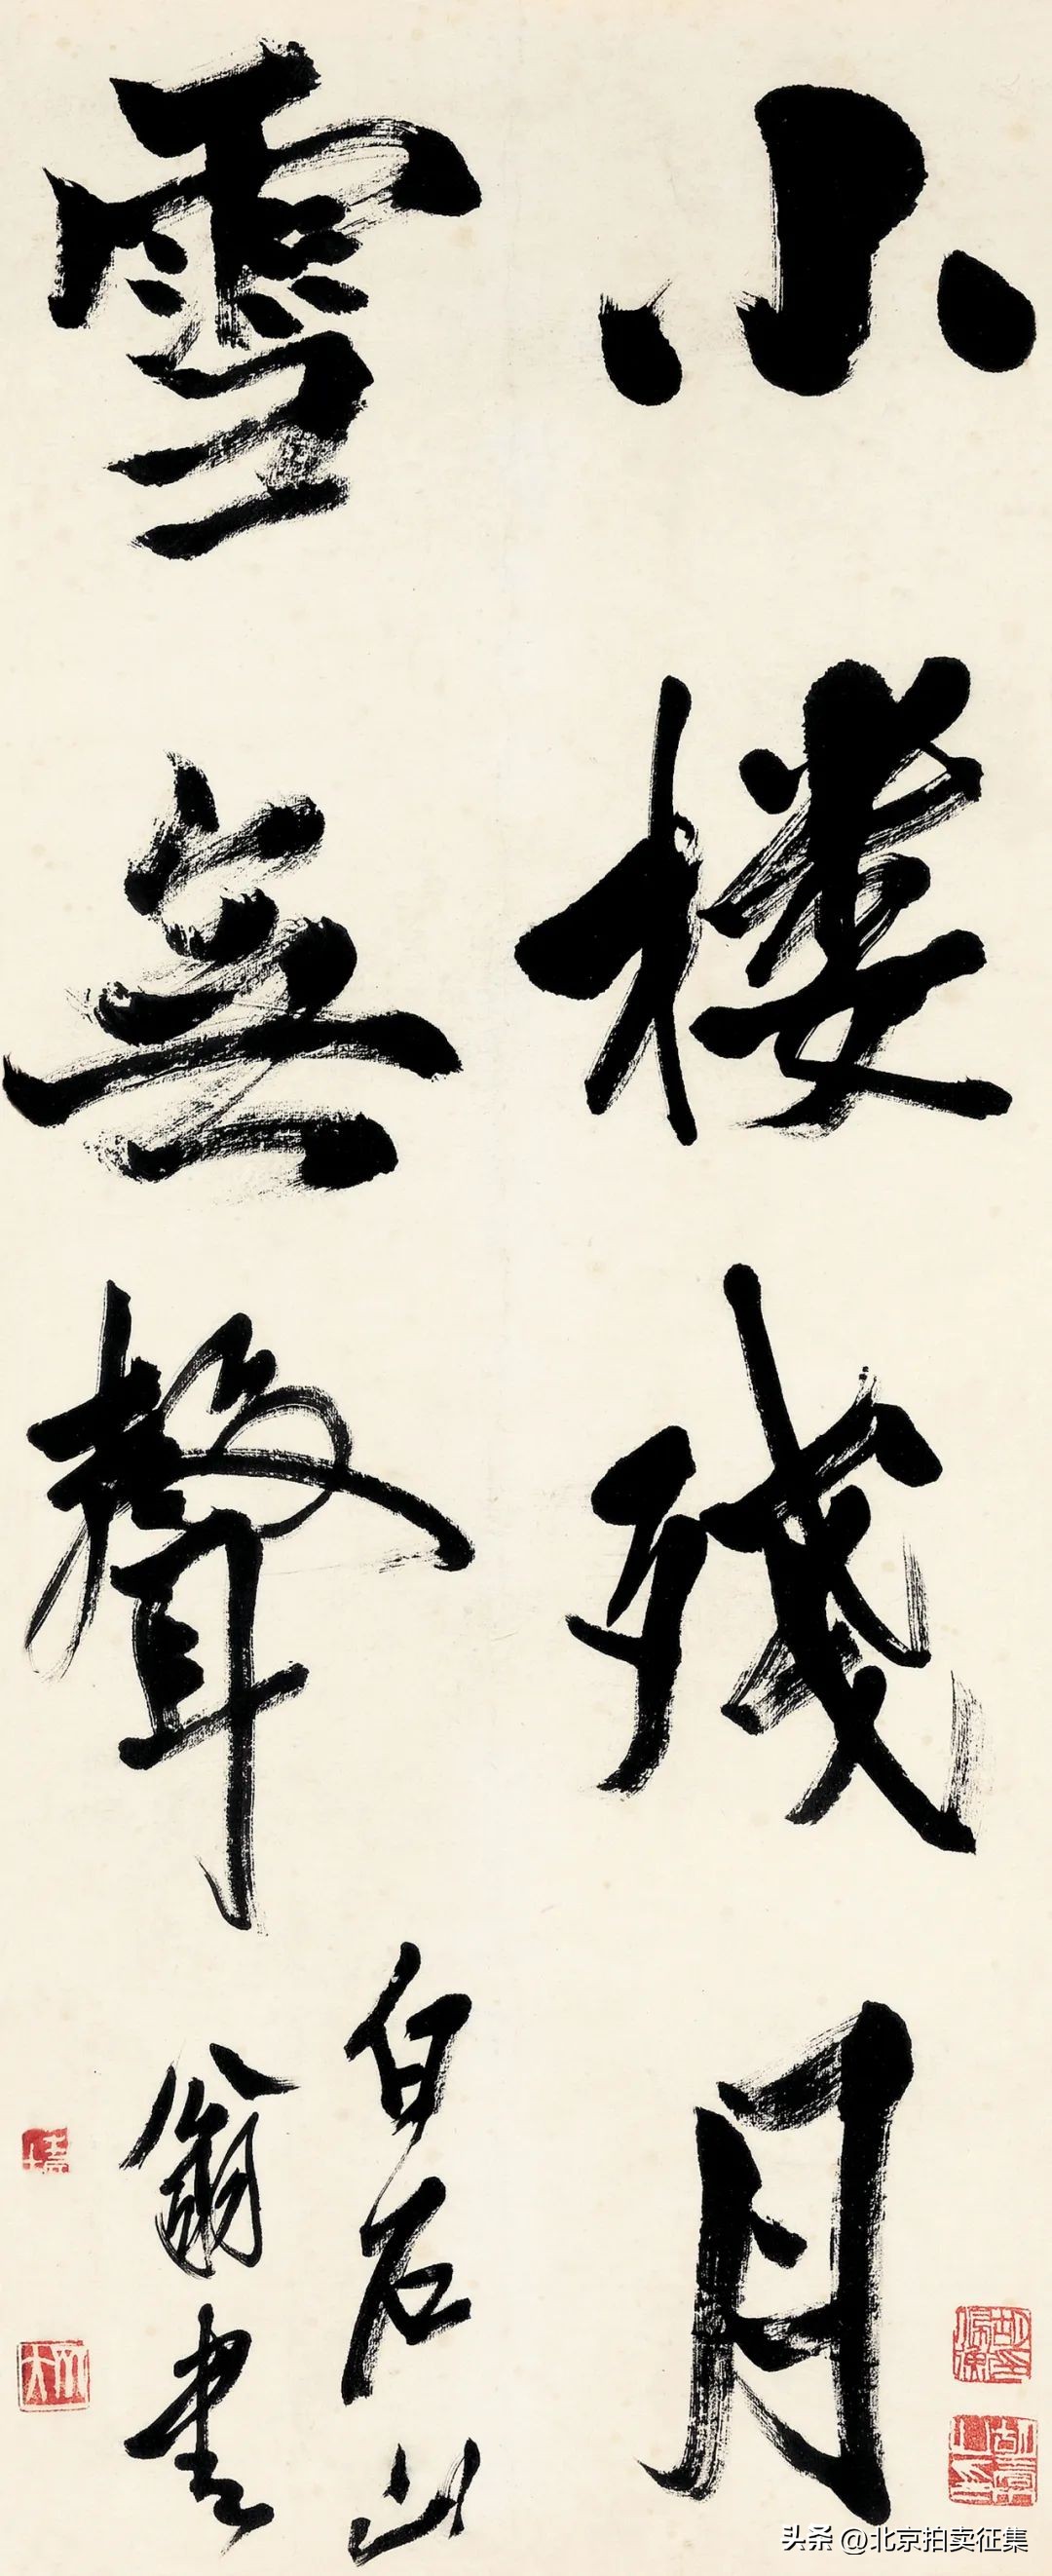 小楼残月
雪無聲
白石山
翁書
头条 @北京拍卖征集